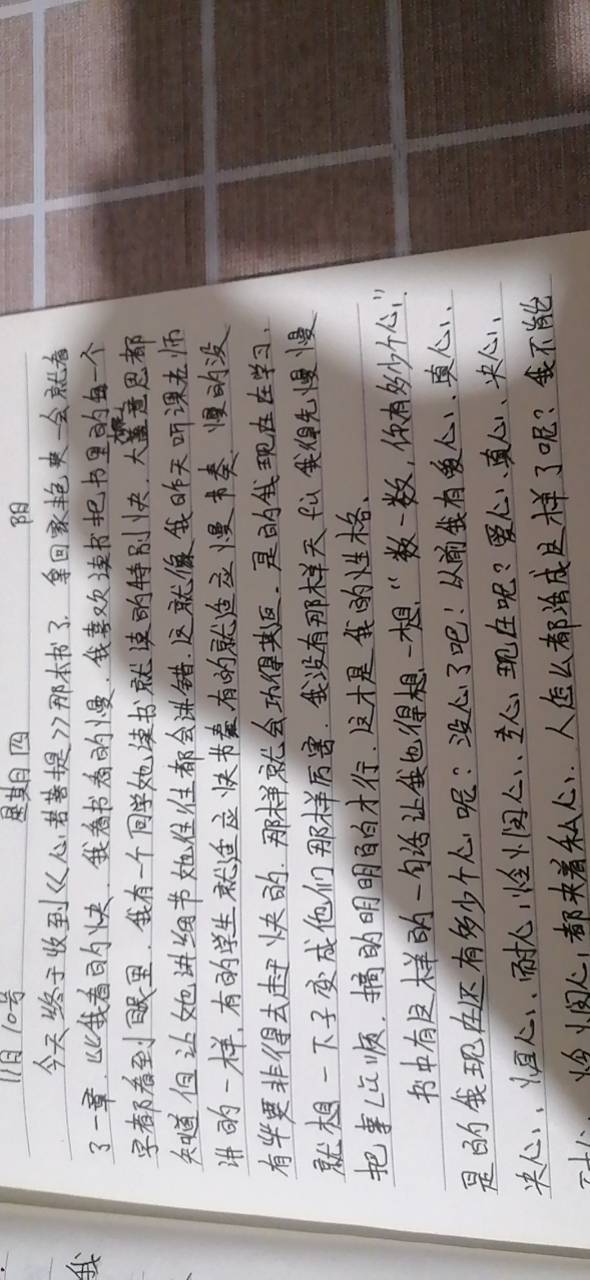 11月10号 星期四 阴
今天终于收到《心若菩提》那本书了，拿回家抱来一会就看
了一章 比我看的快．我看书看的慢．我喜欢读书把书里的每一个
字都看到眼里．我有一个同学她读书就读的特别快．大概意思都
知道 但让她讲细节她往往都会讲错．这就像我昨天听课老师
讲的一样，有的学生就适应快书 有的就适应慢节奏 慢的没
有 要非得去赶快的．那样就会功得其反．是的我现在在学习．
就想一下子变成他们那样厉害．我没有那样天 我得先慢慢
把事 顺．搞的明明白白才行．这才是我的性格．
书中有这样的一句话让我也得想一想，“数一数，你有多少个心．”
是的我现在还有多少个心呢？没心了吧！以前我有爱心、真心、
央心、恒心、耐心 心 现在呢？爱心、真心、央心、
耐心、 心，都夹着私心．人怎么都活成这样了呢？我不能
我